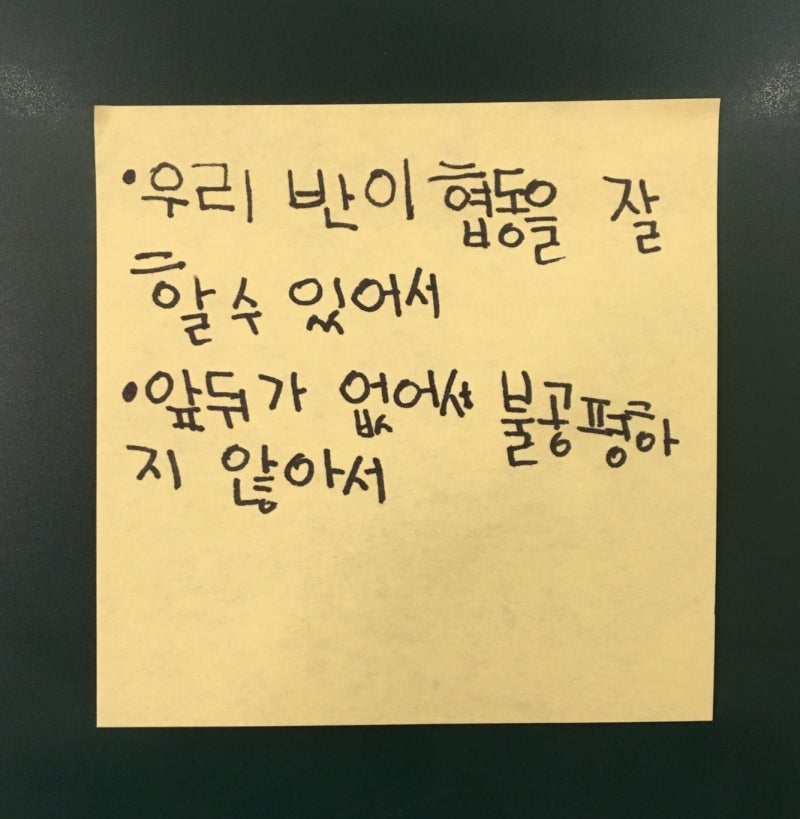 •우리 반이 협동을 잘
할 수 있어서
•앞뒤가 없어서 불공평하
지 않아서